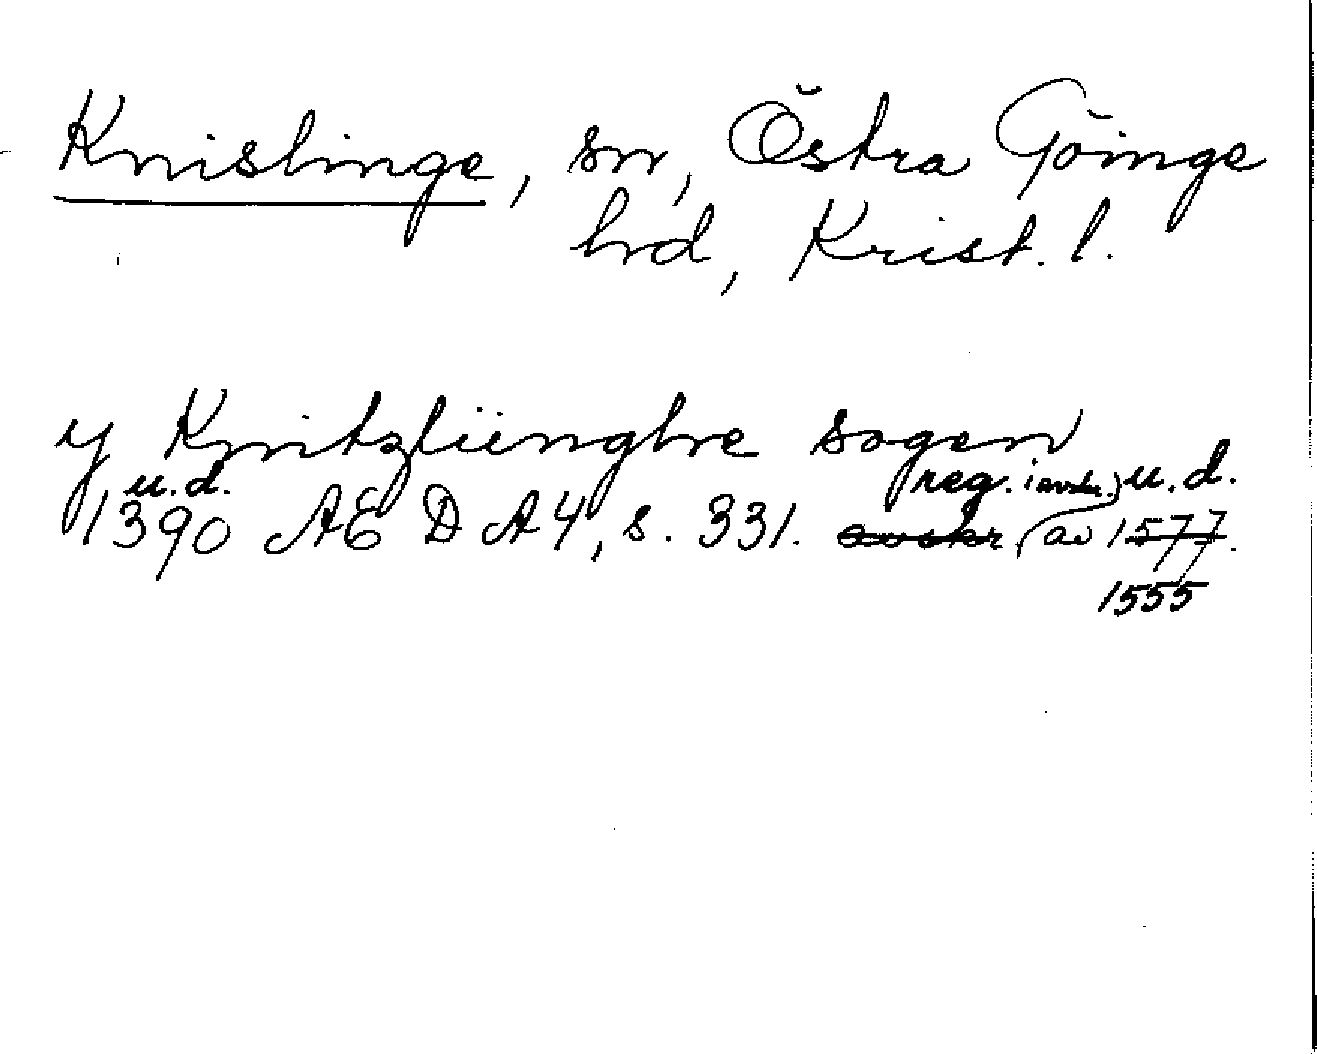 Knislinge, sn, Östra Göinge
hd, Krist. l.
y Knitzliinghe sogen
u.d. reg. i avskr. u.d.
1390 AE D A4, s. 331. avskr. av 1577.
1555